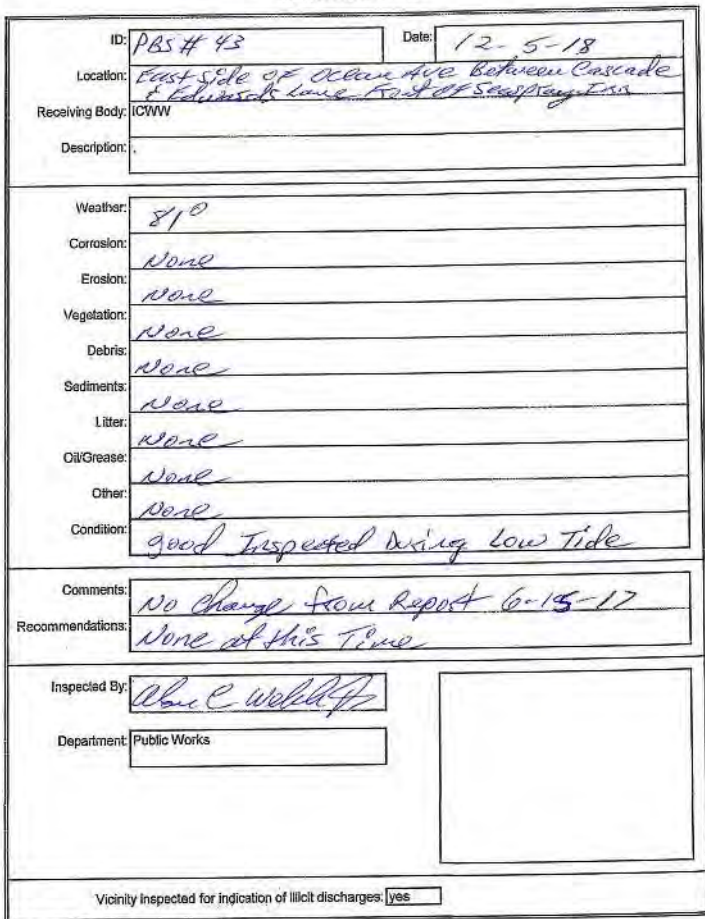 ID: PBS # 43 Date: 12-5-18
Location: East Side OF Ocean Ave Between Cascade
& Edwards Lane Front of Seaspray Inn
Receiving Body: ICWW
Description: .
Weather: 81°
Corrosion: None
Erosion: None
Vegetation: None
Debris: None
Sediments: None
Litter: None
Oil/Grease: None
Other: None
Condition: good Inspected During Low Tide
Comments: No Change from Report 6-15-17
Recommendations: None at this Time
Inspected By:
Department: Public Works
Vicinity Inspected for indication of illicit discharges: yes